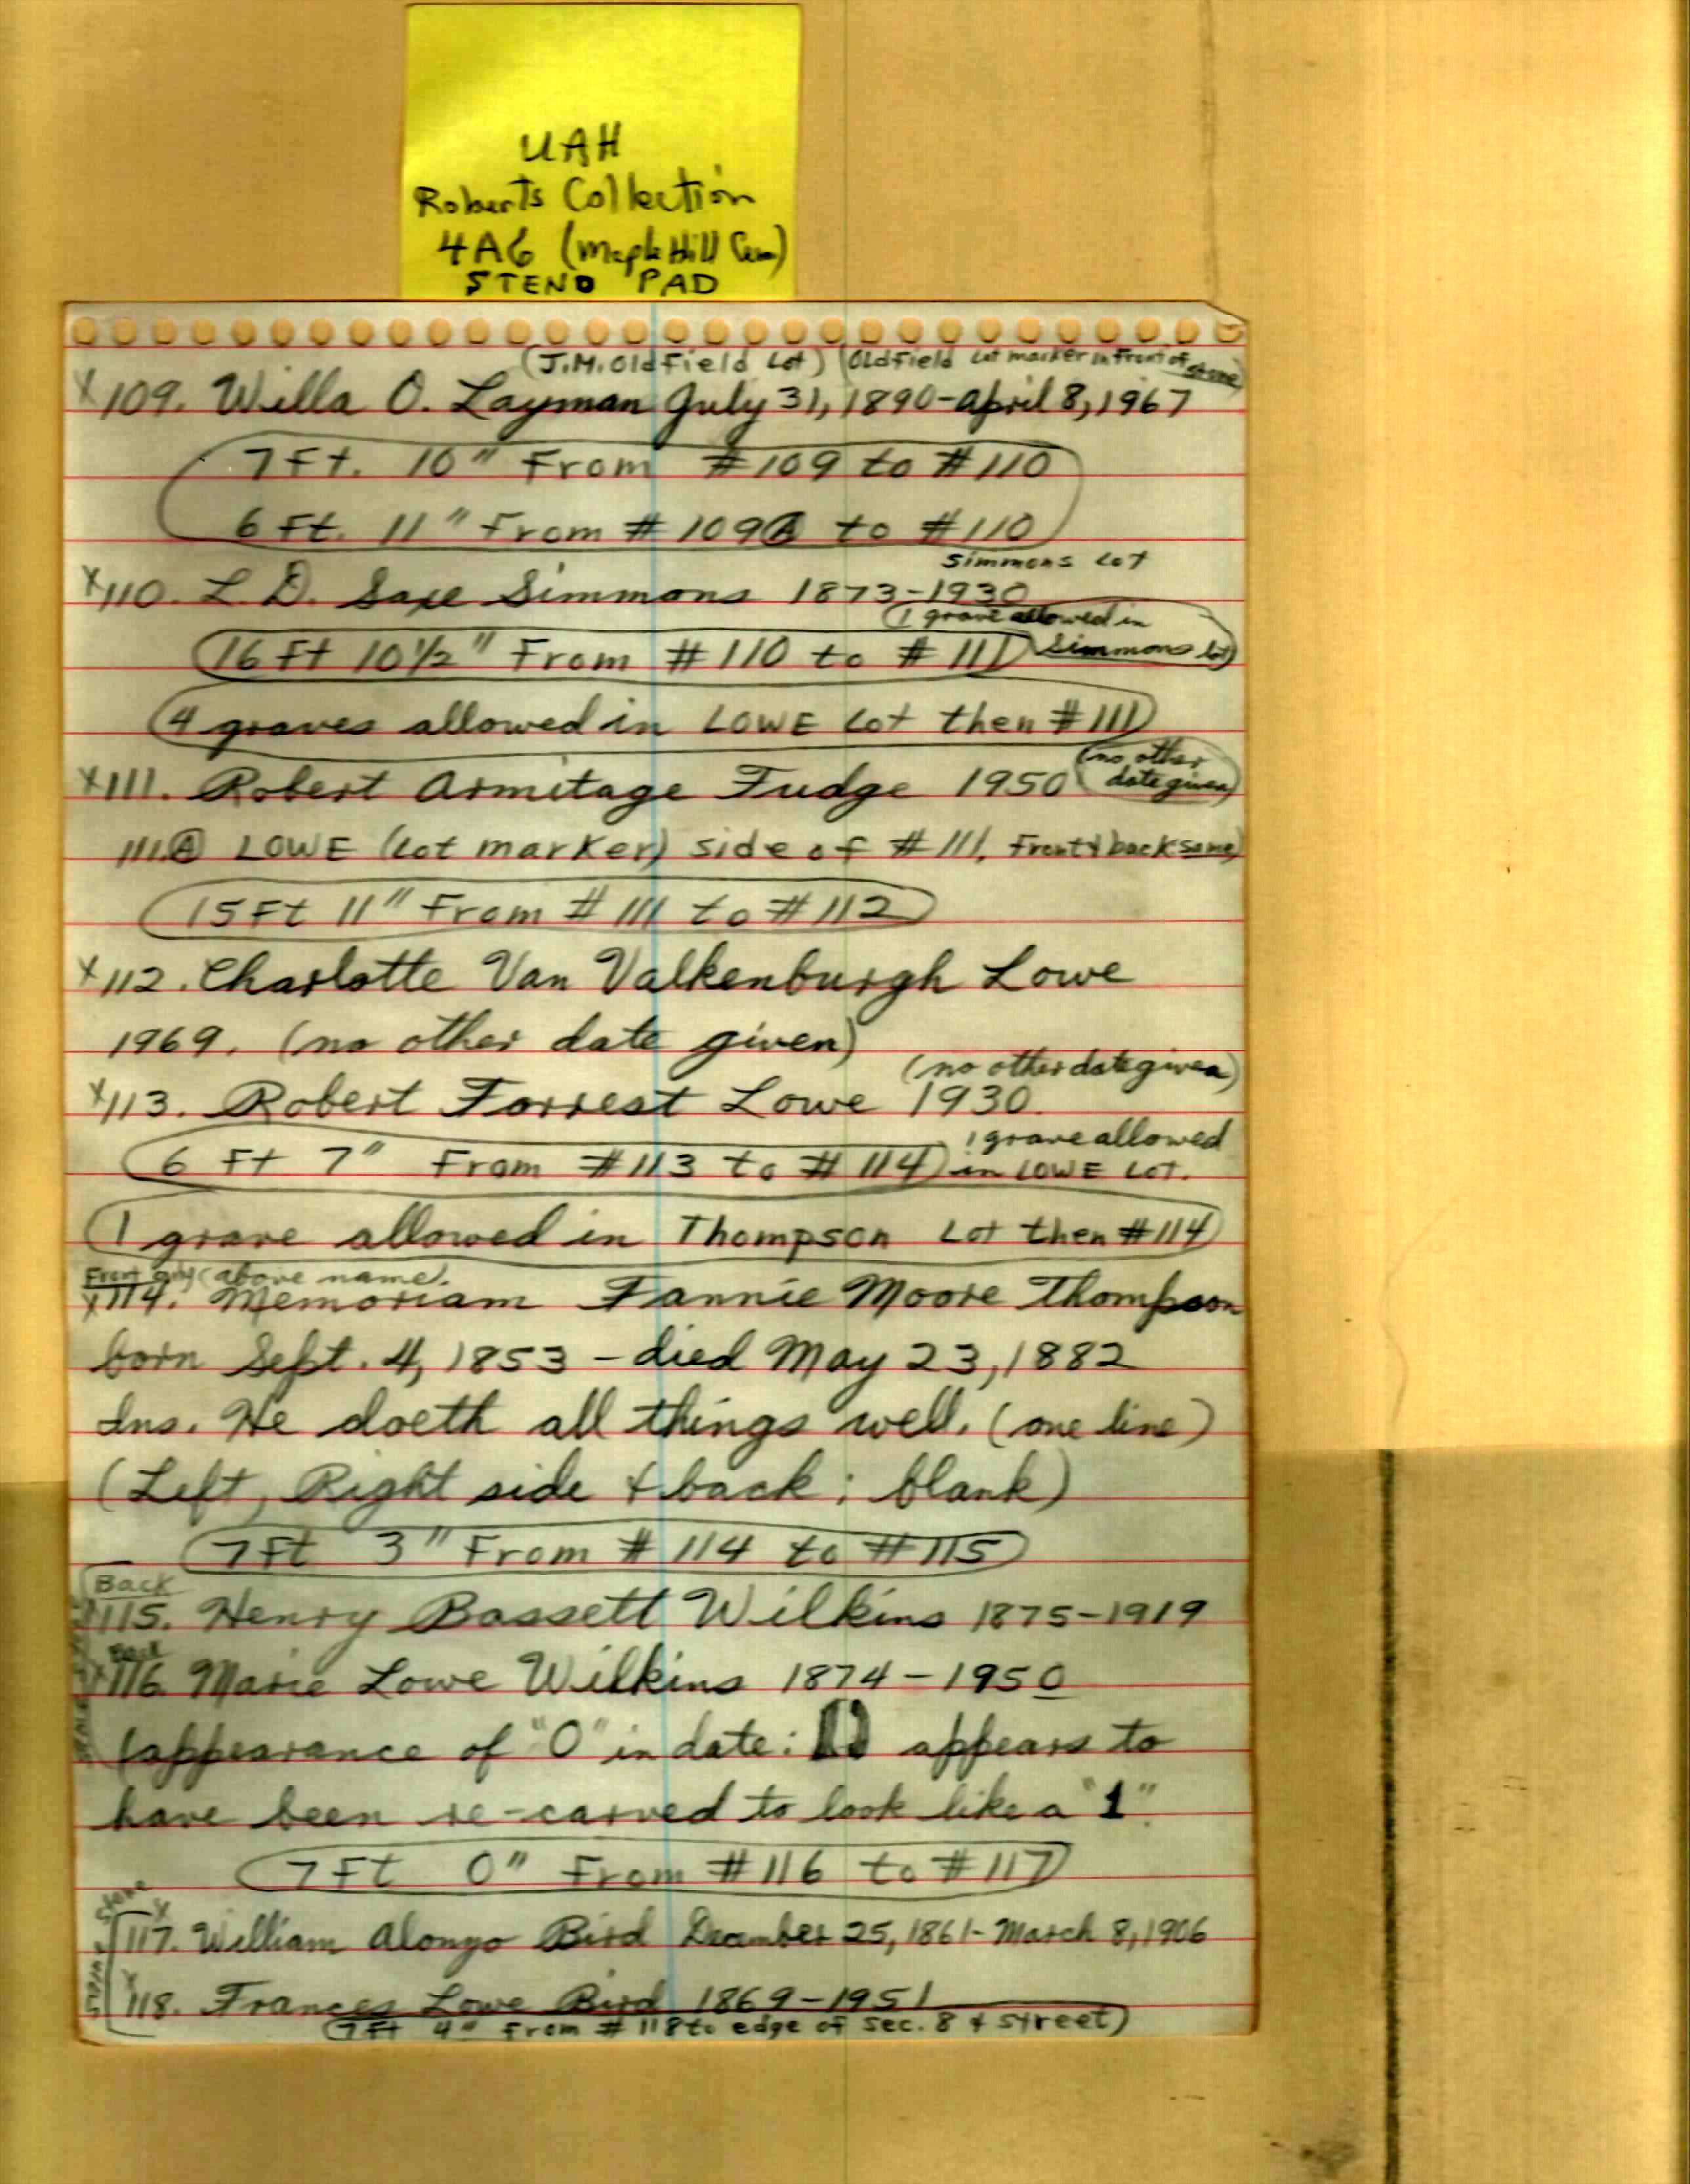 UAH
Roberts Collection
4A6 (Maple Hill Cem)
STENO PAD
(J.M. Oldfield Lot) (Oldfield Lot marker in Front of stone)
X109. Willa O. Layman July 31, 1890-April 8, 1967
7 Ft. 10" From #109 to #110
6 Ft. 11" From #109A to #110
Simmons Lot
X110. L. D. Saxe Simmons 1873-1930
(1 grave allowed in
16 Ft 10½" From #110 to #111 Simmons lot)
4 graves allowed in LOWE Lot then #111
X111. Robert Armitage Fudge 1950 (no other date given)
111.A LOWE (Lot marker) side of #111. Front & back same)
15 Ft 11" From #111 to #112
X112. Charlotte Van Valkenburgh Lowe
1969. (no other date given)
(no other date given)
X113. Robert Forrest Lowe 1930.
1 grave allowed
6 Ft 7" From #113 to #114 in LOWE LOT.
1 grave allowed in Thompson Lot then #114
Front only (above name).
X114. Memoriam Fannie Moore Thompson
born Sept. 4, 1853 - died May 23, 1882
Ins. He doeth all things well. (one line)
(Left, Right side & back : blank)
7 Ft 3" From #114 to #115
Back
X115. Henry Bassett Wilkins 1875-1919
Back
X116. Marie Lowe Wilkins 1874-1950
(appearance of "0" in date: appears to
have been re-carved to look like a "1"
7 Ft 0" From #116 to #117
stone
X117. William Alonzo Bird December 25, 1861-March 8, 1906
X118. Frances Lowe Bird 1869-1951
(7 Ft 4" From #118 to edge of sec. 8 & street)